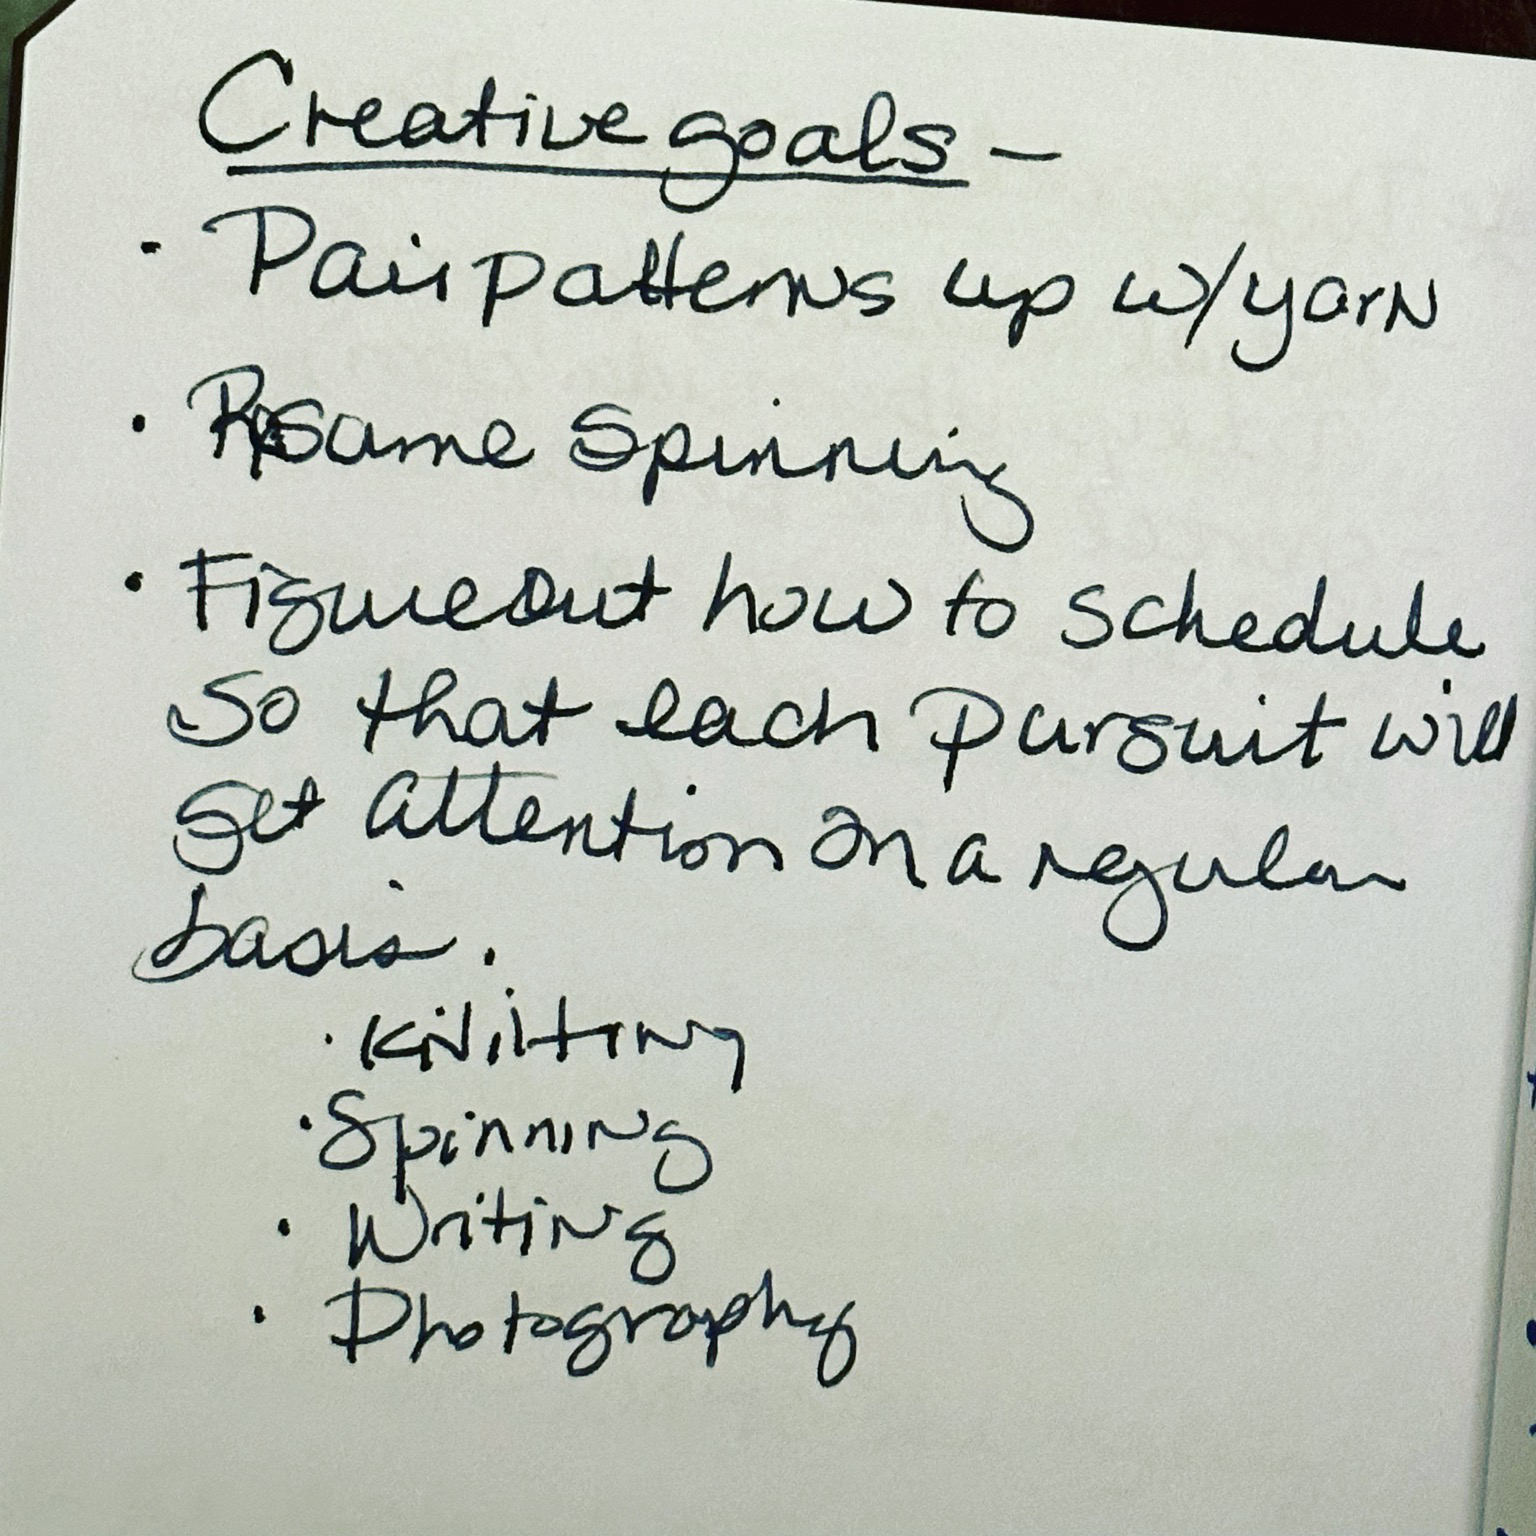 Creative goals -
· Pair patterns up w/yarn
· Resume spinning
· Figure out how to schedule
so that each pursuit will
get attention on a regular
basis.
· Knitting
· Spinning
· Writing
· Photography